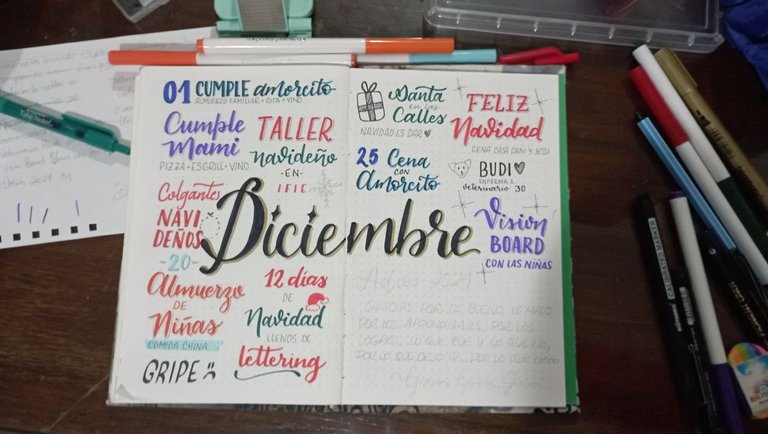 01 CUMPLE amorcito
ALMUERZO FAMILIAR + CITA + VINO
Cumple
Mami
PIZZA + ESGRILL + VINO
TALLER
navideño
-EN-
IFIC
Colgantes
NAVI
DEÑOS
-20-
Almuerzo
DE
Niñas
COMIDA CHINA
GRIPE
12 días
DE
Navidad
LLENOS DE
lettering
Diciembre
Santa
en las
Calles
NAVIDAD ES DAR
FELIZ
Navidad
CENA CASA DANI Y JESSI
25 Cena
CON
Amorcito
BUDI
ENFERMA &
veterinario 30
Visión
BOARD
CON LAS NIÑAS
Adiós 2024
GRACIAS POR LO BUENO, LO MALO
POR LOS APRENDIZAJES, POR LOS
LOGROS, LO QUE FUE Y LO QUE NO,
POR LO QUE DEJO IR